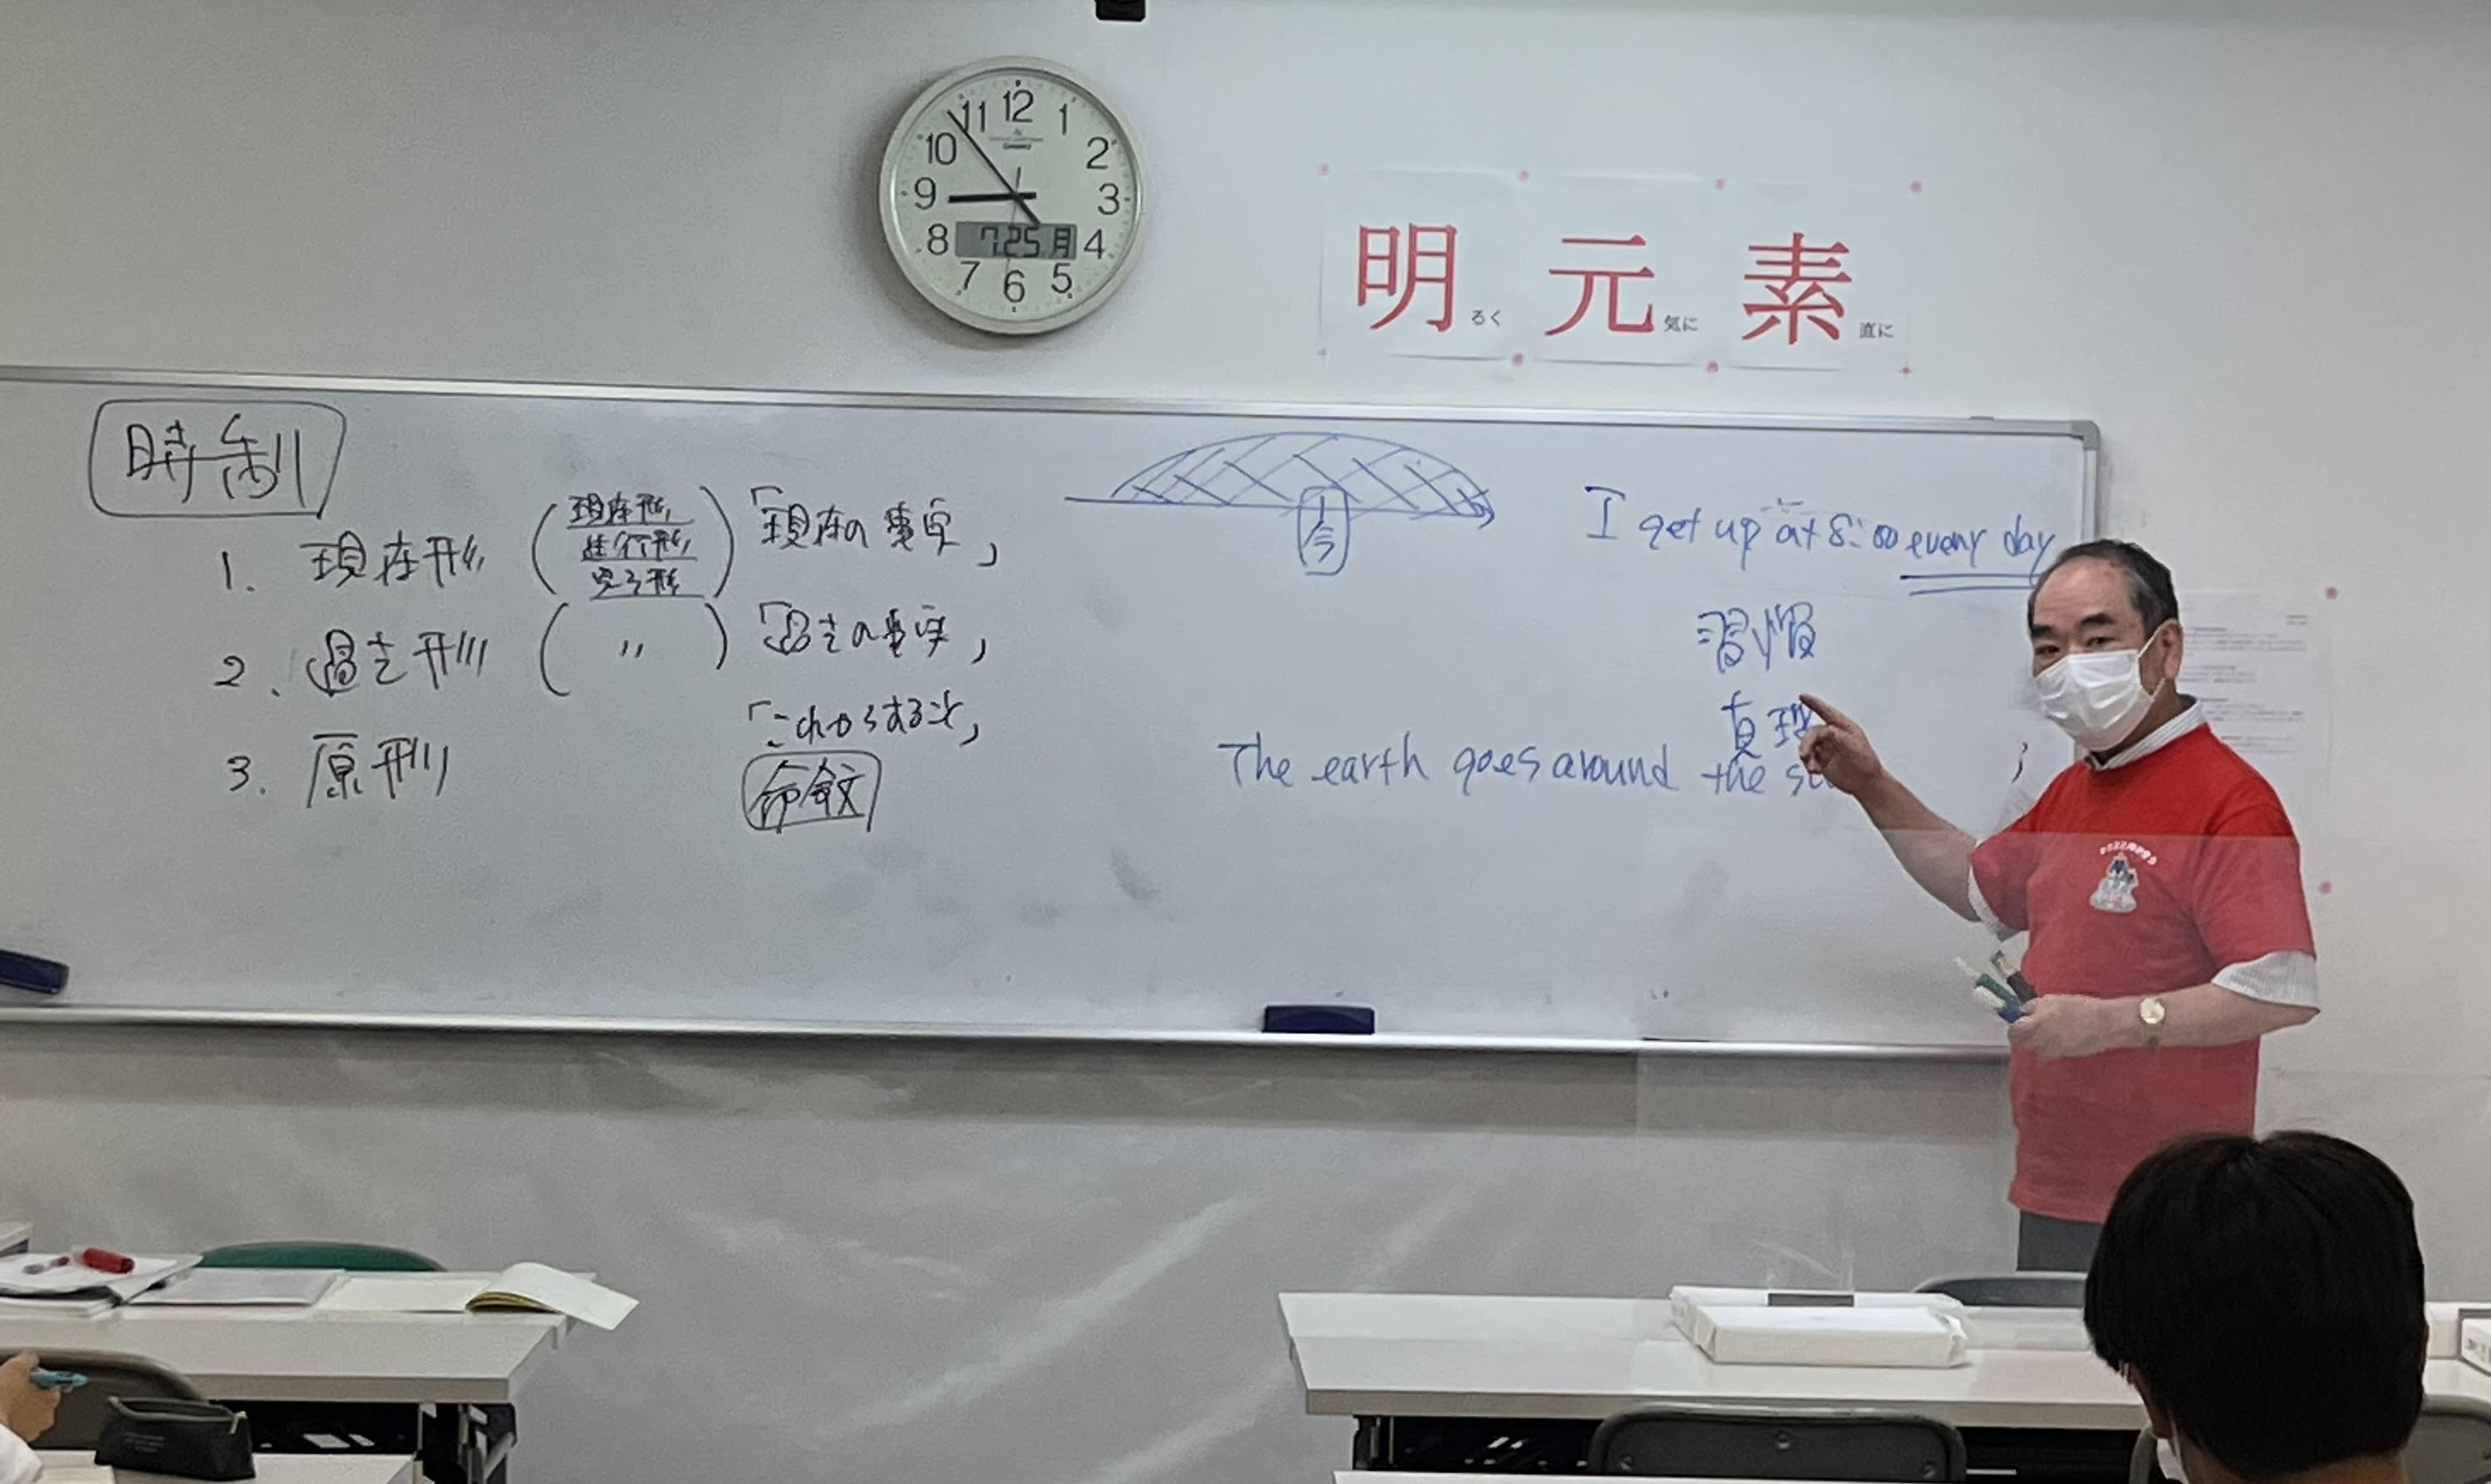 12
11
1
10
2
9
3
8
4
7
6
5
7.25.月
明るく 元気に 素直に
時制
1. 現在形 (現在形, 進行形, 完了形) 「現在の事実」
2. 過去形 ( 〃 ) 「過去の事実」
3. 原形 「これからする事」
命令文
今
I get up at 8:00 every day
習慣
真理
The earth goes around the